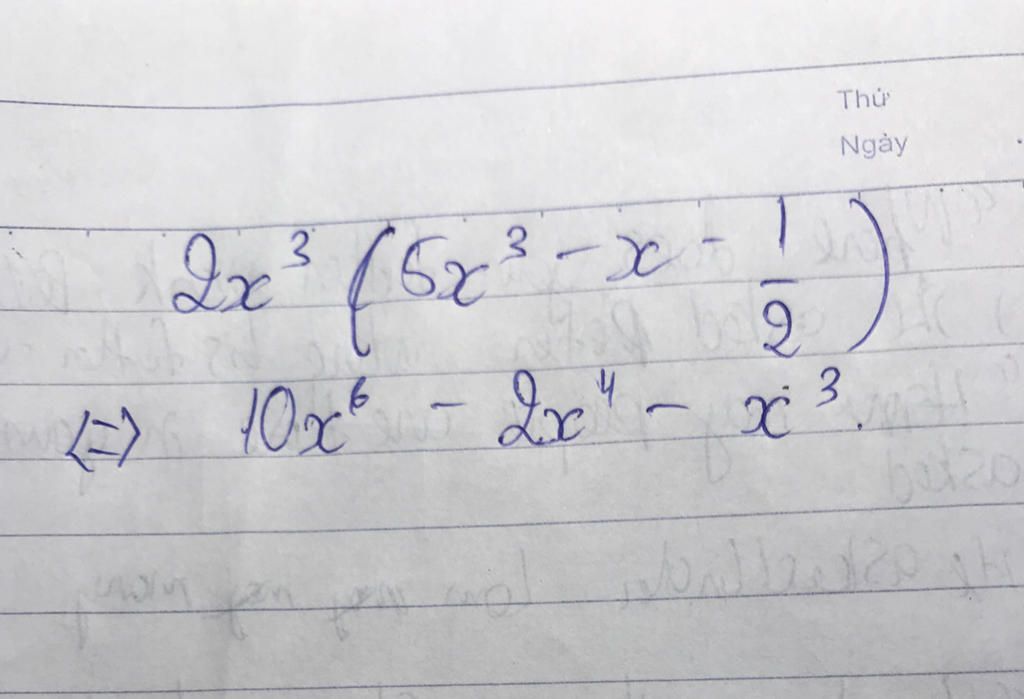 Thứ
Ngày
2x³ (5x³ - x - 1/2)
<=> 10x⁶ - 2x⁴ - x³.